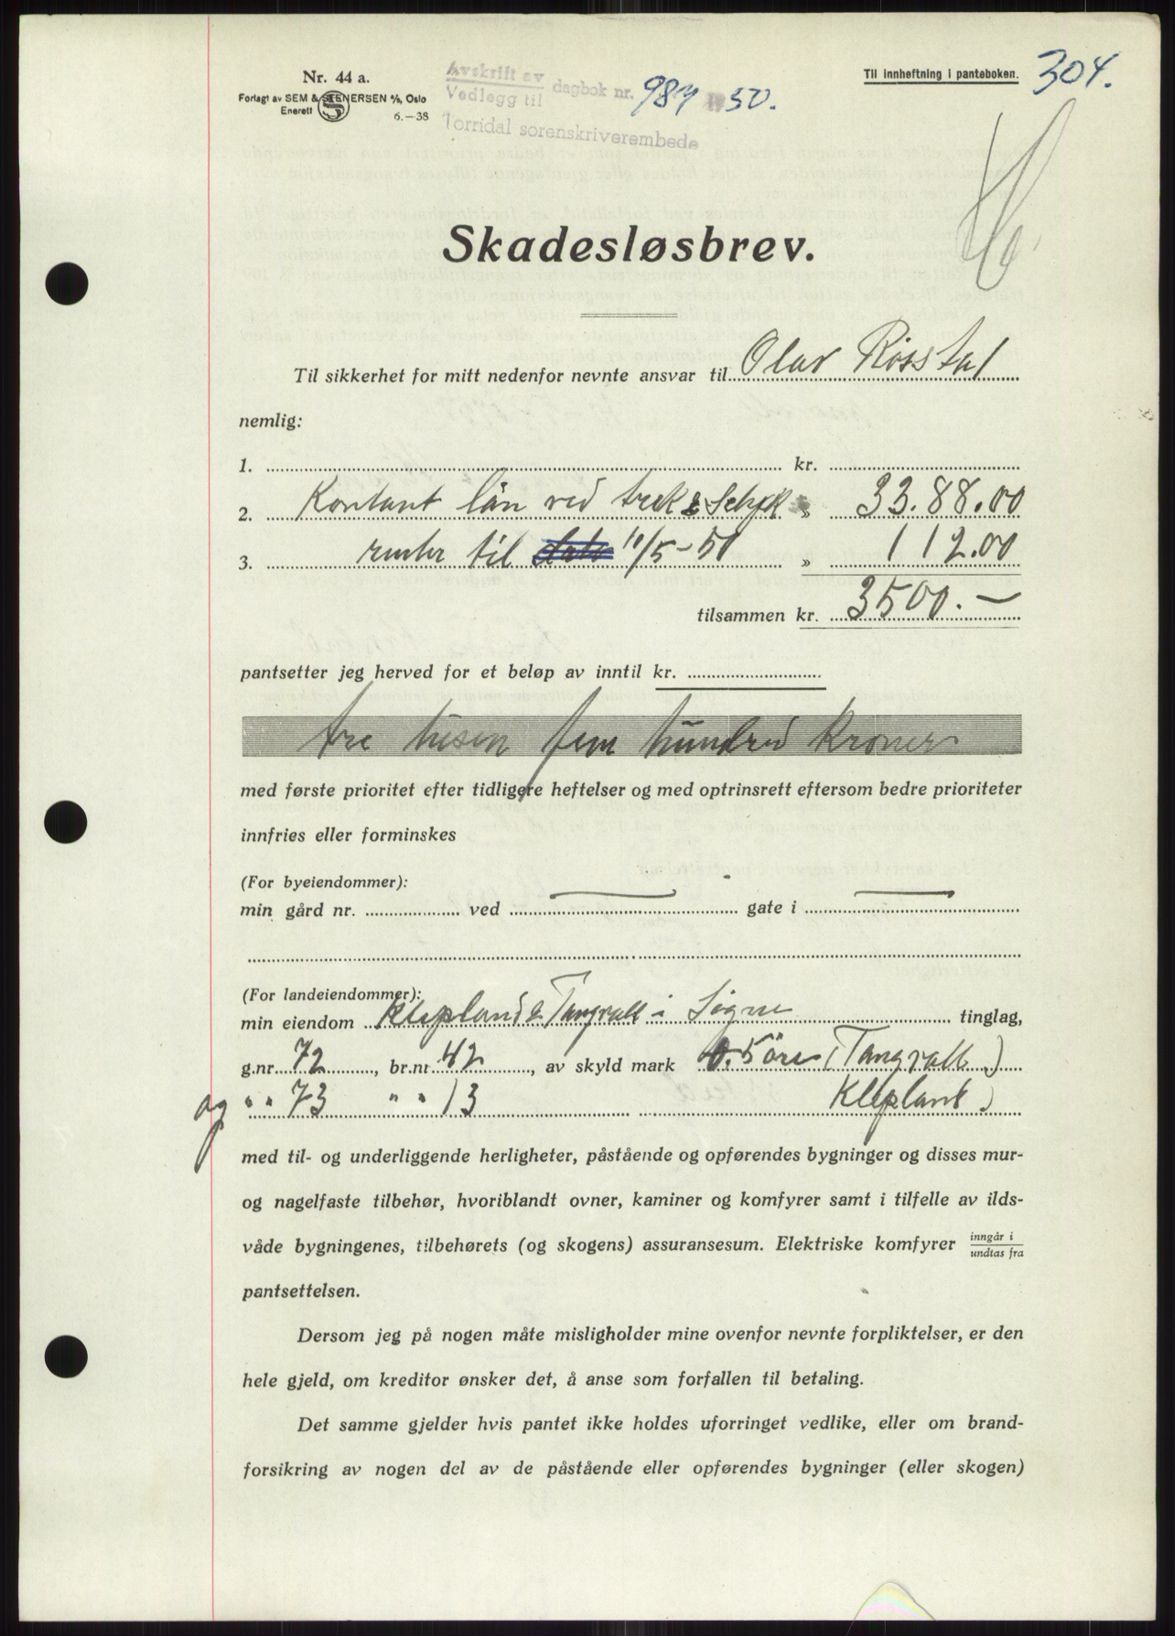 Nr. 44 a.
Forlagt av SEM & STENERSEN A/S, Oslo
Enerett
6.—38
Avskrift av
Vedlegg til
dagbok nr. 987 1950.
Torridal sorenskriverembede
Til innheftning i panteboken.
304.
Skadesløsbrev.
Til sikkerhet for mitt nedenfor nevnte ansvar til Olav Røsstal
nemlig:
1. kr.
2. Kontant lån ved trek & Schjek » 33.88.00
3. renter til dato 11/5-51 » 112.00
tilsammen kr. 3500.—
pantsetter jeg herved for et beløp av inntil kr.
tre tusen fem hundred kroner
med første prioritet efter tidligere heftelser og med optrinsrett eftersom bedre prioriteter
innfries eller forminskes
(For byeiendommer):
min gård nr. ved — gate i —
(For landeiendommer):
min eiendom Klepland & Tangvall i Søgne tinglag,
g.nr. 72, br.nr. 42, av skyld mark 0.5 øre (Tangvall)
og " " 73 " " 13 Klepland)
med til- og underliggende herligheter, påstående og opførendes bygninger og disses mur-
og nagelfaste tilbehør, hvoriblandt ovner, kaminer og komfyrer samt i tilfelle av ilds-
våde bygningenes, tilbehørets (og skogens) assuransesum. Elektriske komfyrer inngår i
undtas fra
pantsettelsen.
Dersom jeg på nogen måte misligholder mine ovenfor nevnte forpliktelser, er den
hele gjeld, om kreditor ønsker det, å anse som forfallen til betaling.
Det samme gjelder hvis pantet ikke holdes uforringet vedlike, eller om brand-
forsikring av nogen del av de påstående eller opførendes bygninger (eller skogen)